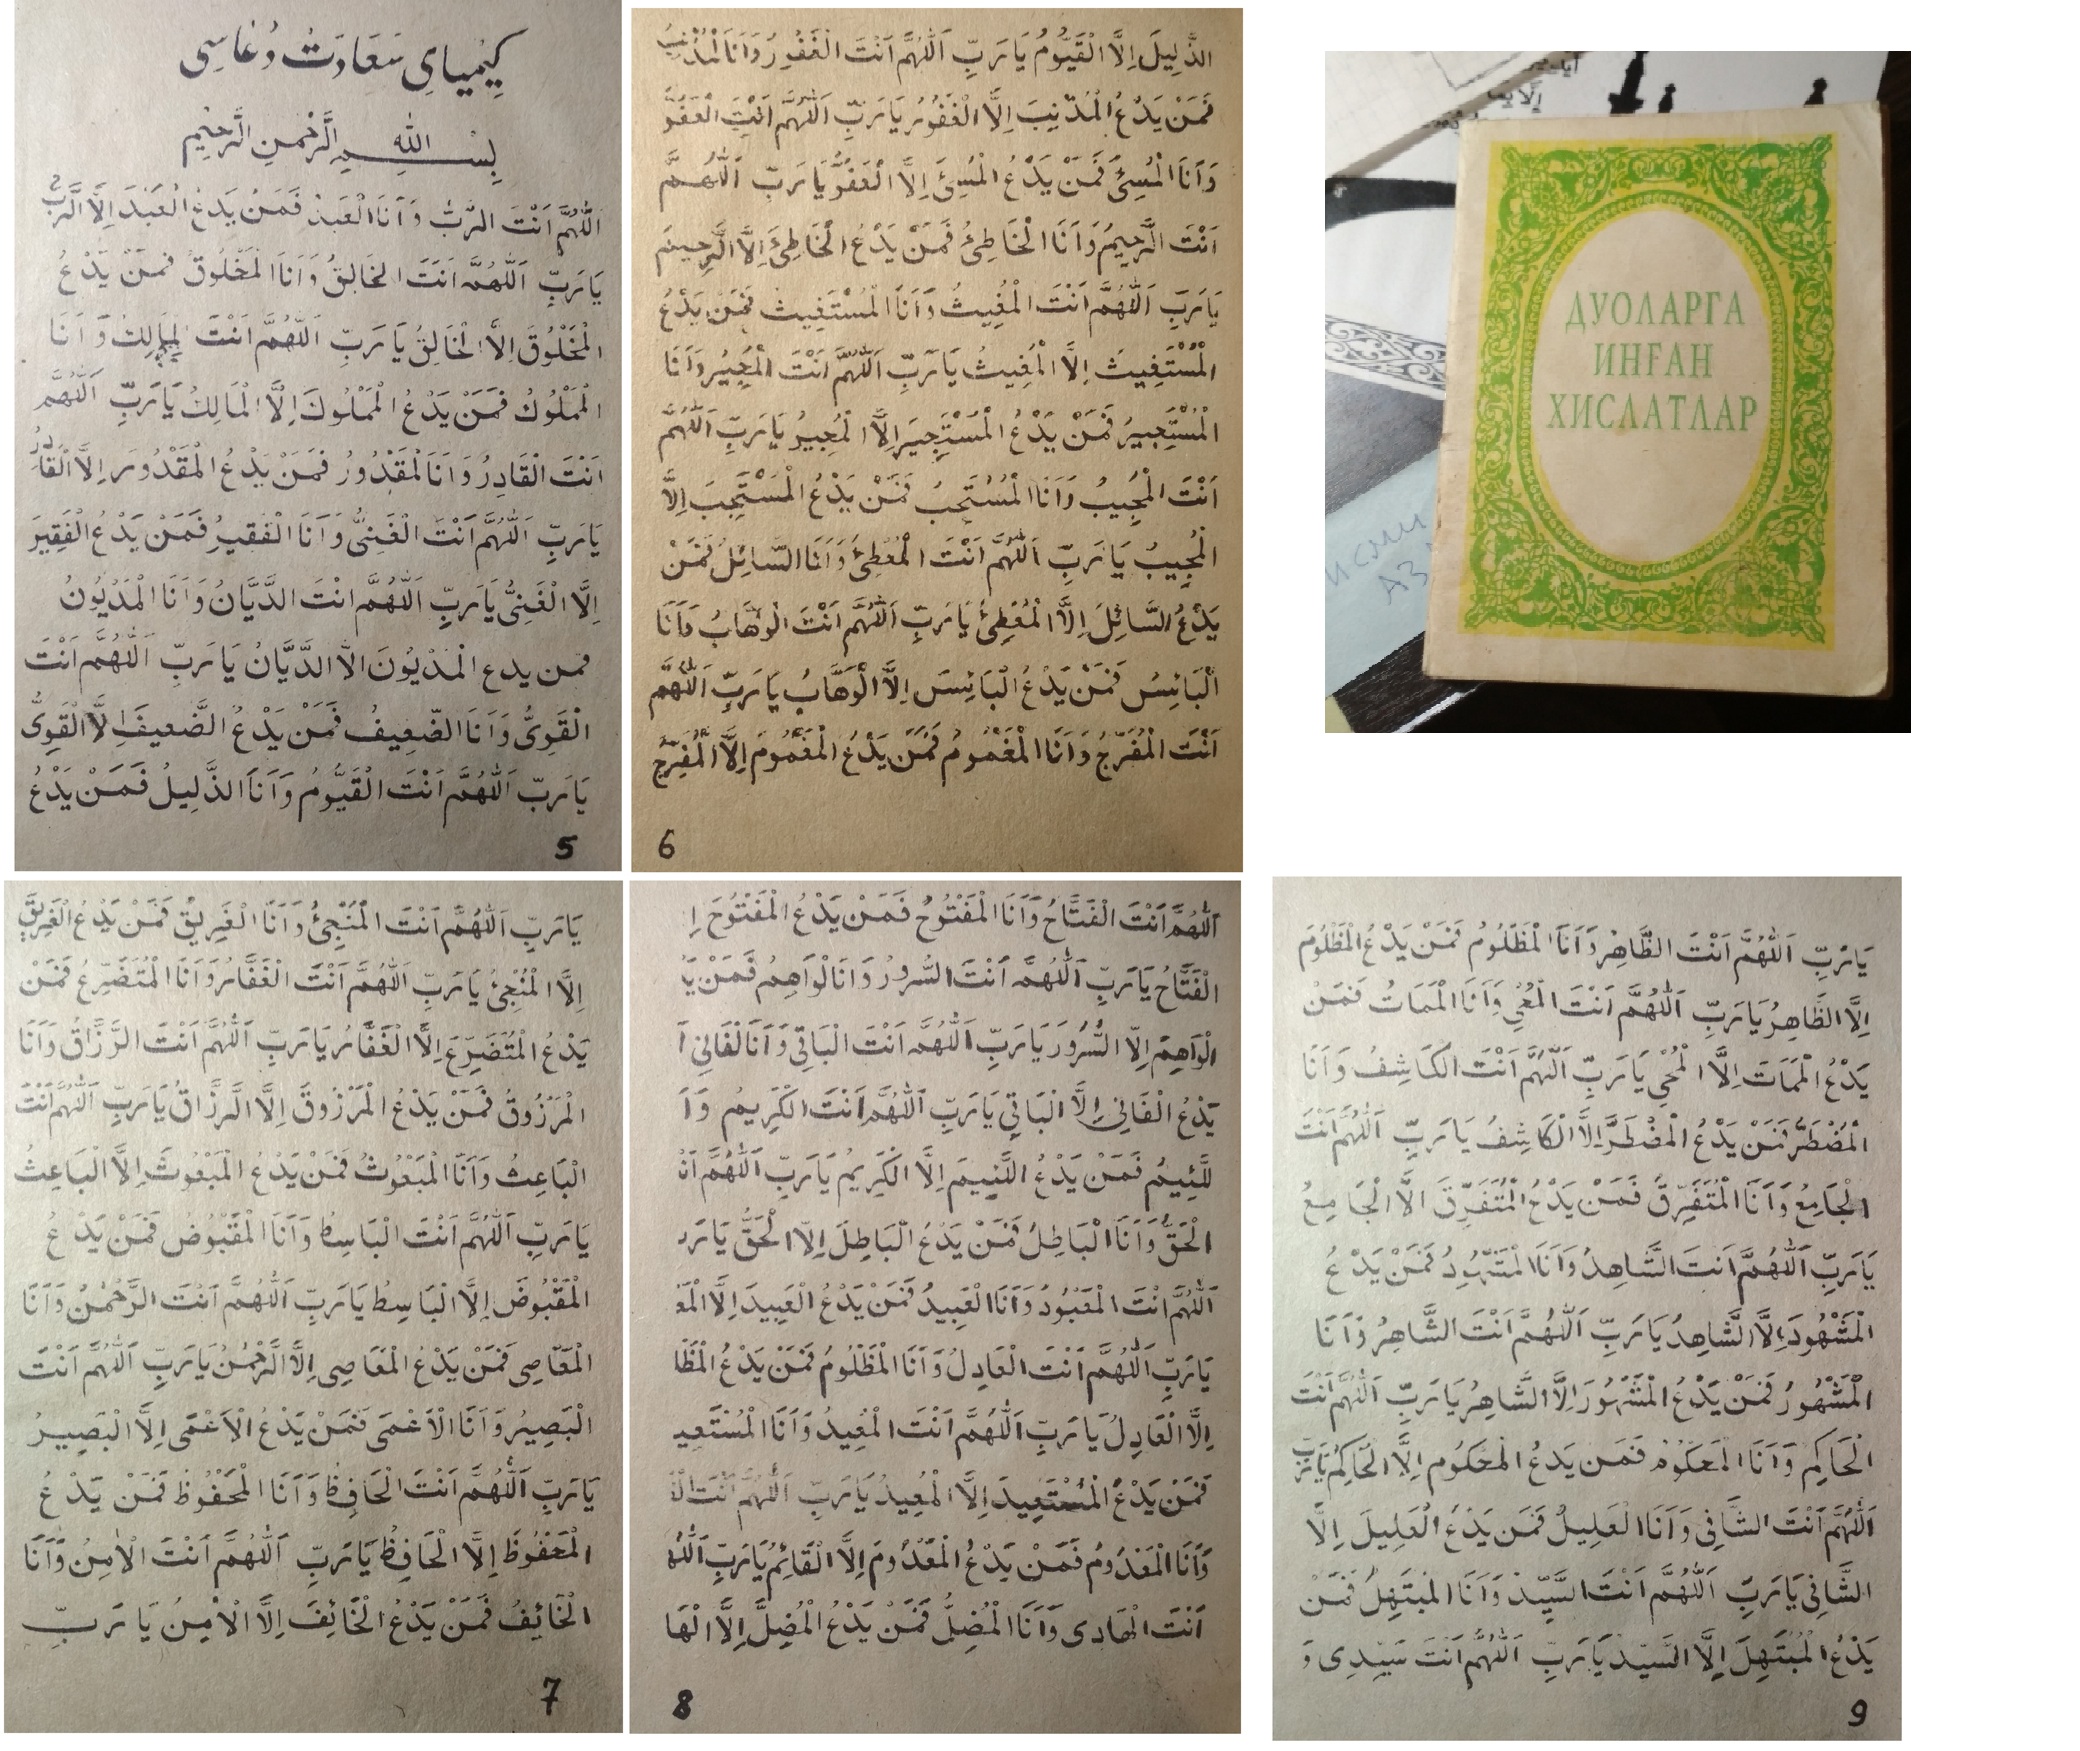 كِيْمِيَاىِ سَعَادَتْ دُعَاسِى
بِسْمِ اللهِ الرَّحْمنِ الرَّحِيْمِ
اَللّٰهُمَّ اَنْتَ الرَّبُّ وَ اَنَا الْعَبْدُ فَمَنْ يَدْعُ الْعَبْدَ اِلَّا الرَّبُّ
يَا رَبِّ اَللّٰهُمَّ اَنْتَ الْخَالِقُ وَ اَنَا الْمَخْلُوقُ فَمَنْ يَدْعُ
الْمَخْلُوقَ اِلَّا الْخَالِقُ يَا رَبِّ اَللّٰهُمَّ اَنْتَ الْمَالِكُ وَ اَنَا
الْمَمْلُوكُ فَمَنْ يَدْعُ الْمَمْلُوكَ اِلَّا الْمَالِكُ يَا رَبِّ اَللّٰهُمَّ
اَنْتَ الْقَادِرُ وَ اَنَا الْمَقْدُورُ فَمَنْ يَدْعُ الْمَقْدُورَ اِلَّا الْقَادِرُ
يَا رَبِّ اَللّٰهُمَّ اَنْتَ الْغَنِىُّ وَ اَنَا الْفَقِيرُ فَمَنْ يَدْعُ الْفَقِيرَ
اِلَّا الْغَنِىُّ يَا رَبِّ اَللّٰهُمَّ اَنْتَ الدَّيَّانُ وَ اَنَا الْمَدْيُونُ
فمن يدع الْمَدْيُونَ الَّا الدَّيَّانُ يَا رَبِّ اَللّٰهُمَّ اَنْتَ
الْقَوِىُّ وَ اَنَا الضَّعِيفُ فَمَنْ يَدْعُ الضَّعِيفَ اِلَّا الْقَوِىُّ
يَا رَبِّ اَللّٰهُمَّ اَنْتَ الْقَيُّومُ وَ اَنَا الذَّلِيلُ فَمَنْ يَدْعُ
5
الذَّلِيلَ اِلَّا الْقَيُّومُ يَا رَبِّ اَللّٰهُمَّ اَنْتَ الْغَفُورُ وَ اَنَا الْمُذْنِبُ
فَمَنْ يَدْعُ الْمُذْنِبَ اِلَّا الْغَفُورُ يَا رَبِّ اَللّٰهُمَّ اَنْتَ الْعَفُوُّ
وَ اَنَا الْمُسِئُ فَمَنْ يَدْعُ الْمُسِئَ اِلَّا الْعَفُوُّ يَا رَبِّ اَللّٰهُمَّ
اَنْتَ الرَّحِيمُ وَ اَنَا الْخَاطِئُ فَمَنْ يَدْعُ الْخَاطِئَ اِلَّا الرَّحِيمُ
يَا رَبِّ اَللّٰهُمَّ اَنْتَ الْمُغِيثُ وَ اَنَا الْمُسْتَغِيثُ فَمَنْ يَدْعُ
الْمُسْتَغِيثَ اِلَّا الْمُغِيثُ يَا رَبِّ اَللّٰهُمَّ اَنْتَ الْمُجِيرُ وَ اَنَا
الْمُسْتَجِيرُ فَمَنْ يَدْعُ الْمُسْتَجِيرَ اِلَّا الْمُجِيرُ يَا رَبِّ اَللّٰهُمَّ
اَنْتَ الْمُجِيبُ وَ اَنَا الْمُسْتَجِبُ فَمَنْ يَدْعُ الْمُسْتَجِبَ اِلَّا
الْمُجِيبُ يَا رَبِّ اَللّٰهُمَّ اَنْتَ الْمُعْطِئُ وَ اَنَا السَّائِلُ فَمَنْ
يَدْعُ السَّائِلَ اِلَّا الْمُعْطِئُ يَا رَبِّ اَللّٰهُمَّ اَنْتَ الْوَهَّابُ وَ اَنَا
الْبَائِسُ فَمَنْ يَدْعُ الْبَائِسَ اِلَّا الْوَهَّابُ يَا رَبِّ اَللّٰهُمَّ
اَنْتَ الْمُفَرِّجُ وَ اَنَا الْمَغْمُومُ فَمَنْ يَدْعُ الْمَغْمُومَ اِلَّا الْمُفَرِّجُ
6
ДУОЛАРГА
ИНҒАН
ХИСЛАТЛАР
исми
АЗ
يَا رَبِّ اَللّٰهُمَّ اَنْتَ الْمُنْجِئُ وَ اَنَا الْغَرِيقُ فَمَنْ يَدْعُ الْغَرِيقَ
اِلَّا الْمُنْجِئُ يَا رَبِّ اَللّٰهُمَّ اَنْتَ الْغَفَّارُ وَ اَنَا الْمُتَضَرِّعُ فَمَنْ
يَدْعُ الْمُتَضَرِّعَ اِلَّا الْغَفَّارُ يَا رَبِّ اَللّٰهُمَّ اَنْتَ الرَّزَّاقُ وَ اَنَا
الْمَرْزُوقُ فَمَنْ يَدْعُ الْمَرْزُوقَ اِلَّا الرَّزَّاقُ يَا رَبِّ اَللّٰهُمَّ اَنْتَ
الْبَاعِثُ وَ اَنَا الْمَبْعُوثُ فَمَنْ يَدْعُ الْمَبْعُوثَ اِلَّا الْبَاعِثُ
يَا رَبِّ اَللّٰهُمَّ اَنْتَ الْبَاسِطُ وَ اَنَا الْمَقْبُوضُ فَمَنْ يَدْعُ
الْمَقْبُوضَ اِلَّا الْبَاسِطُ يَا رَبِّ اَللّٰهُمَّ اَنْتَ الرَّحْمٰنُ وَ اَنَا
الْمَعَاصِى فَمَنْ يَدْعُ الْمَعَاصِى اِلَّا الرَّحْمٰنُ يَا رَبِّ اَللّٰهُمَّ اَنْتَ
الْبَصِيرُ وَ اَنَا الْاَعْمَى فَمَنْ يَدْعُ الْاَعْمَى اِلَّا الْبَصِيرُ
يَا رَبِّ اَللّٰهُمَّ اَنْتَ الْحَافِظُ وَ اَنَا الْمَحْفُوظُ فَمَنْ يَدْعُ
الْمَحْفُوظَ اِلَّا الْحَافِظُ يَا رَبِّ اَللّٰهُمَّ اَنْتَ الْاَمِنُ وَ اَنَا
الْخَائِفُ فَمَنْ يَدْعُ الْخَائِفَ اِلَّا الْاَمِنُ يَا رَبِّ
7
اَللّٰهُمَّ اَنْتَ الْفَتَّاحُ وَ اَنَا الْمَفْتُوحُ فَمَنْ يَدْعُ الْمَفْتُوحَ اِ
الْفَتَّاحُ يَا رَبِّ اَللّٰهُمَّ اَنْتَ السُّرُورُ وَ اَنَا لْوَاهِمُ فَمَنْ يَدْ
الْوَاهِمَ اِلَّا السُّرُورَ يَا رَبِّ اَللّٰهُمَّ اَنْتَ الْبَاقِى وَ اَنَا لْفَانِى اَ
يَدْعُ الْفَانِى اِلَّا الْبَاقِى يَا رَبِّ اَللّٰهُمَّ اَنْتَ الْكَرِيمُ وَ اَ
للَّئِيمُ فَمَنْ يَدْعُ اللَّئِيمَ اِلَّا الْكَرِيمُ يَا رَبِّ اَللّٰهُمَّ اَنْ
الْحَقُّ وَ اَنَا الْبَاطِلُ فَمَنْ يَدْعُ الْبَاطِلَ اِلَّا الْحَقُّ يَا رَبِ
اَللّٰهُمَّ اَنْتَ الْمَعْبُودُ وَ اَنَا الْعَبِيدُ فَمَنْ يَدْعُ الْعَبِيدَ اِلَّا الْمَعْ
يَا رَبِّ اَللّٰهُمَّ اَنْتَ الْعَادِلُ وَ اَنَا الْمَظْلُومُ فَمَنْ يَدْعُ الْمَظْلُ
اِلَّا الْعَادِلُ يَا رَبِّ اَللّٰهُمَّ اَنْتَ الْمُعِيدُ وَ اَنَا الْمُسْتَعِيدُ
فَمَنْ يَدْعُ الْمُسْتَعِيدَ اِلَّا الْمُعِيدُ يَا رَبِّ اَللّٰهُمَّ اَنْتَ الْقَ
وَ اَنَا الْمَعْدُومُ فَمَنْ يَدْعُ الْمَعْدُومَ اِلَّا الْقَائِمُ يَا رَبِّ اَللّٰهُ
اَنْتَ الْهَادِى وَ اَنَا الْمُضِلُّ فَمَنْ يَدْعُ الْمُضِلَّ اِلَّا الْهَا
8
يَا رَبِّ اَللّٰهُمَّ اَنْتَ الظَّاهِرُ وَ اَنَا الْمَظْلُومُ فَمَنْ يَدْعُ الْمَظْلُومَ
اِلَّا الظَّاهِرُ يَا رَبِّ اَللّٰهُمَّ اَنْتَ الْمُحْىِ وَ اَنَا الْمَمَاتُ فَمَنْ
يَدْعُ الْمَمَاتَ اِلَّا الْمُحْىِ يَا رَبِّ اَللّٰهُمَّ اَنْتَ الْكَاشِفُ وَ اَنَا
الْمُضْطَرُّ فَمَنْ يَدْعُ الْمُضْطَرَّ اِلَّا الْكَاشِفُ يَا رَبِّ اَللّٰهُمَّ اَنْتَ
الْجَامِعُ وَ اَنَا الْمُتَفَرِّقُ فَمَنْ يَدْعُ الْمُتَفَرِّقَ الَّا الْجَامِعُ
يَا رَبِّ اَللّٰهُمَّ اَنْتَ الشَّاهِدُ وَ اَنَا الْمَشْهُودُ فَمَنْ يَدْعُ
الْمَشْهُودَ اِلَّا الشَّاهِدُ يَا رَبِّ اَللّٰهُمَّ اَنْتَ الشَّاهِرُ وَ اَنَا
الْمَشْهُورُ فَمَنْ يَدْعُ الْمَشْهُورَ اِلَّا الشَّاهِرُ يَا رَبِّ اَللّٰهُمَّ اَنْتَ
الْحَاكِمُ وَ اَنَا الْمَحْكُومُ فَمَنْ يَدْعُ الْمَحْكُومَ اِلَّا الْحَاكِمُ يَا رَبِّ
اَللّٰهُمَّ اَنْتَ الشَّافِى وَ اَنَا الْعَلِيلُ فَمَنْ يَدْعُ الْعَلِيلَ اِلَّا
الشَّافِى يَا رَبِّ اَللّٰهُمَّ اَنْتَ السَّيِّدُ وَ اَنَا الْمُبْتَهِلُ فَمَنْ
يَدْعُ الْمُبْتَهِلَ اِلَّا السَّيِّدُ يَا رَبِّ اَللّٰهُمَّ اَنْتَ سَيِّدِى وَ
9